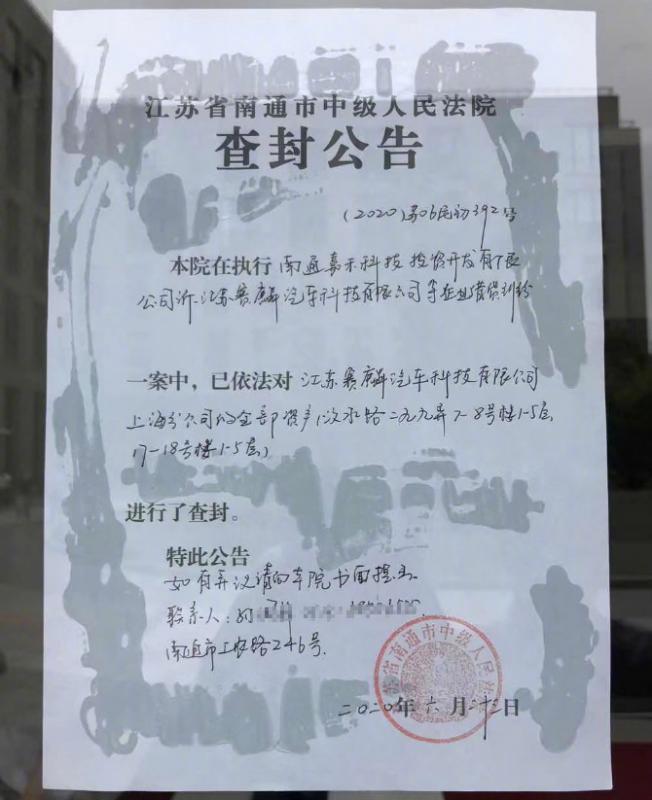 江苏省南通市中级人民法院
查封公告
(2020)苏06民初392号
本院在执行 南通嘉禾科技投资开发有限
公司诉江苏赛麟汽车科技有限公司等企业借贷纠纷
一案中，已依法对 江苏赛麟汽车科技有限公司
上海分公司的全部资产(汶水路二九九弄7-8号楼1-5层
17-18号楼1-5层)
进行了查封。
特此公告
如有异议请向本院书面提出
联系人：
南通市工农路246号.
江苏省南通市中级人民法院
二〇二〇年六月二十三日